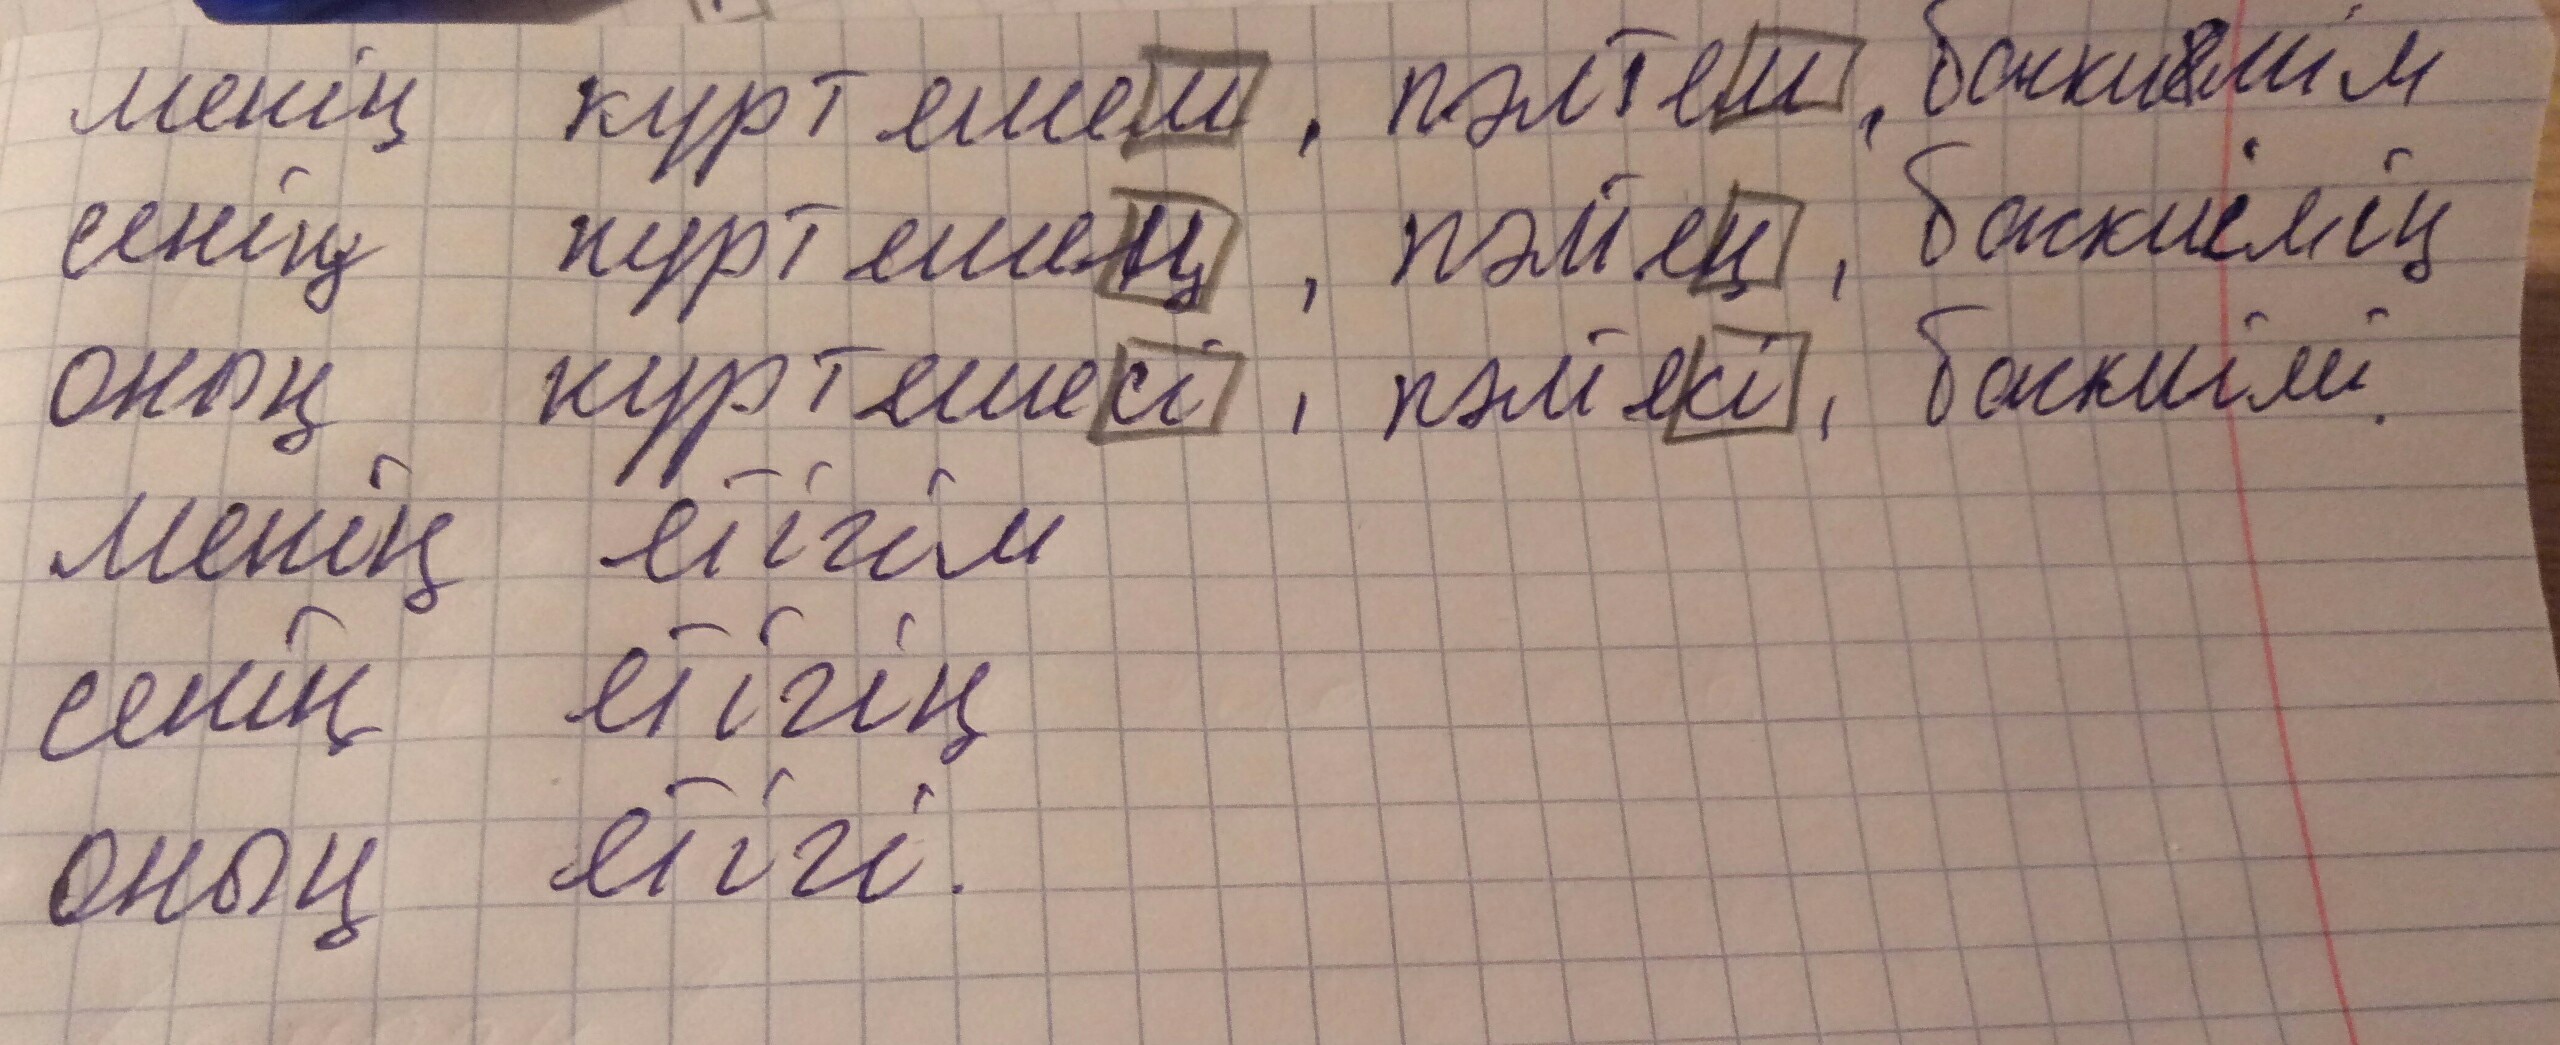 менің куртешем, пәлтем, баскиімім
сенің куртешең, пәлтең, баскиімің
оның куртешесі, пәлтесі, баскиімі.
менің етігім
сенің етігің
оның етігі.